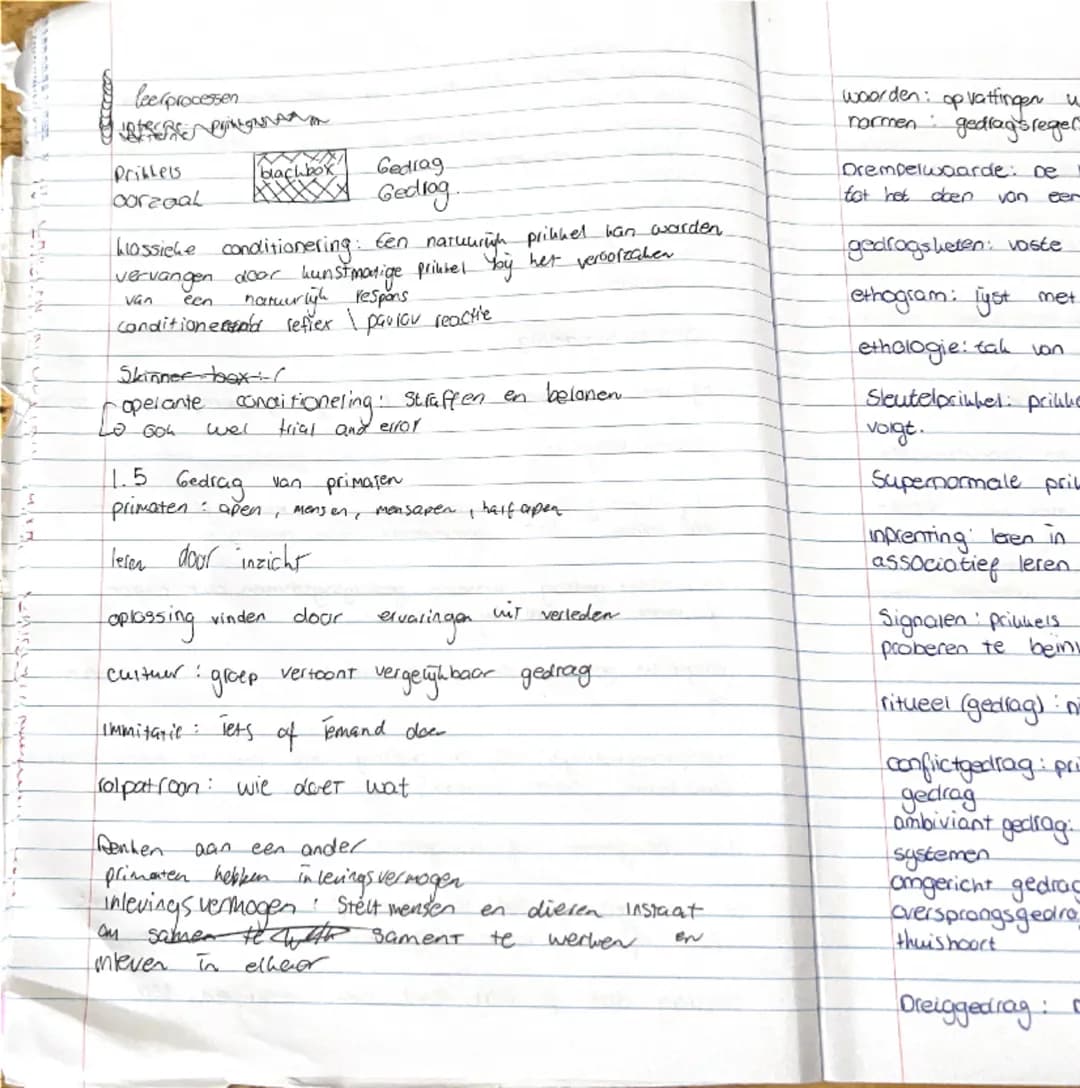 leerprocessen
Prikkels blackbox Gedrag
oorzaak Gedrag.
klassieke conditionering: Een natuurlijk prikkel kan worden
vervangen door kunstmatige prikkel bij het veroorzaken
van een natuurlijk respons
reflex \ pavlov reactie
Skinner box :
operante conditionering: Straffen en belonen
↳ ook wel trial and error
1.5 Gedrag van primaten
primaten : apen, mensen, mensapen, half apen
leren door inzicht
oplossing vinden door ervaringen uit verleden
cultuur : groep vertoont vergelijkbaar gedrag
immitatie : iets of iemand doen
rolpatroon : wie doet wat
Denken aan een ander
primaten hebben inlevingsvermogen
inlevingsvermogen : Stelt mensen en dieren instaat
om samen te sament te werken en
inleven in elkaar
waarden: opvattingen
normen : gedragsregel
Drempelwaarde: De
tot het doen van een
gedragsketen: vaste
ethogram: lijst met
ethologie: tak van
Sleutelprikkel: prikke
volgt.
Supernormale prik
inprenting: leren in
associatief leren
Signalen : prikkels
proberen te beïn
ritueel (gedrag) : n
conflictgedrag: pri
gedrag
ambiviant gedrag:
systemen
omgericht gedrag
oversprongsgedra
thuishoort
Dreiggedrag :